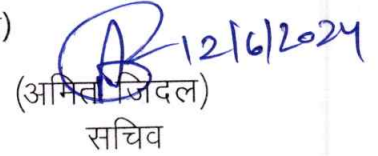 )
12/6/2024
(अमित जिंदल)
सचिव